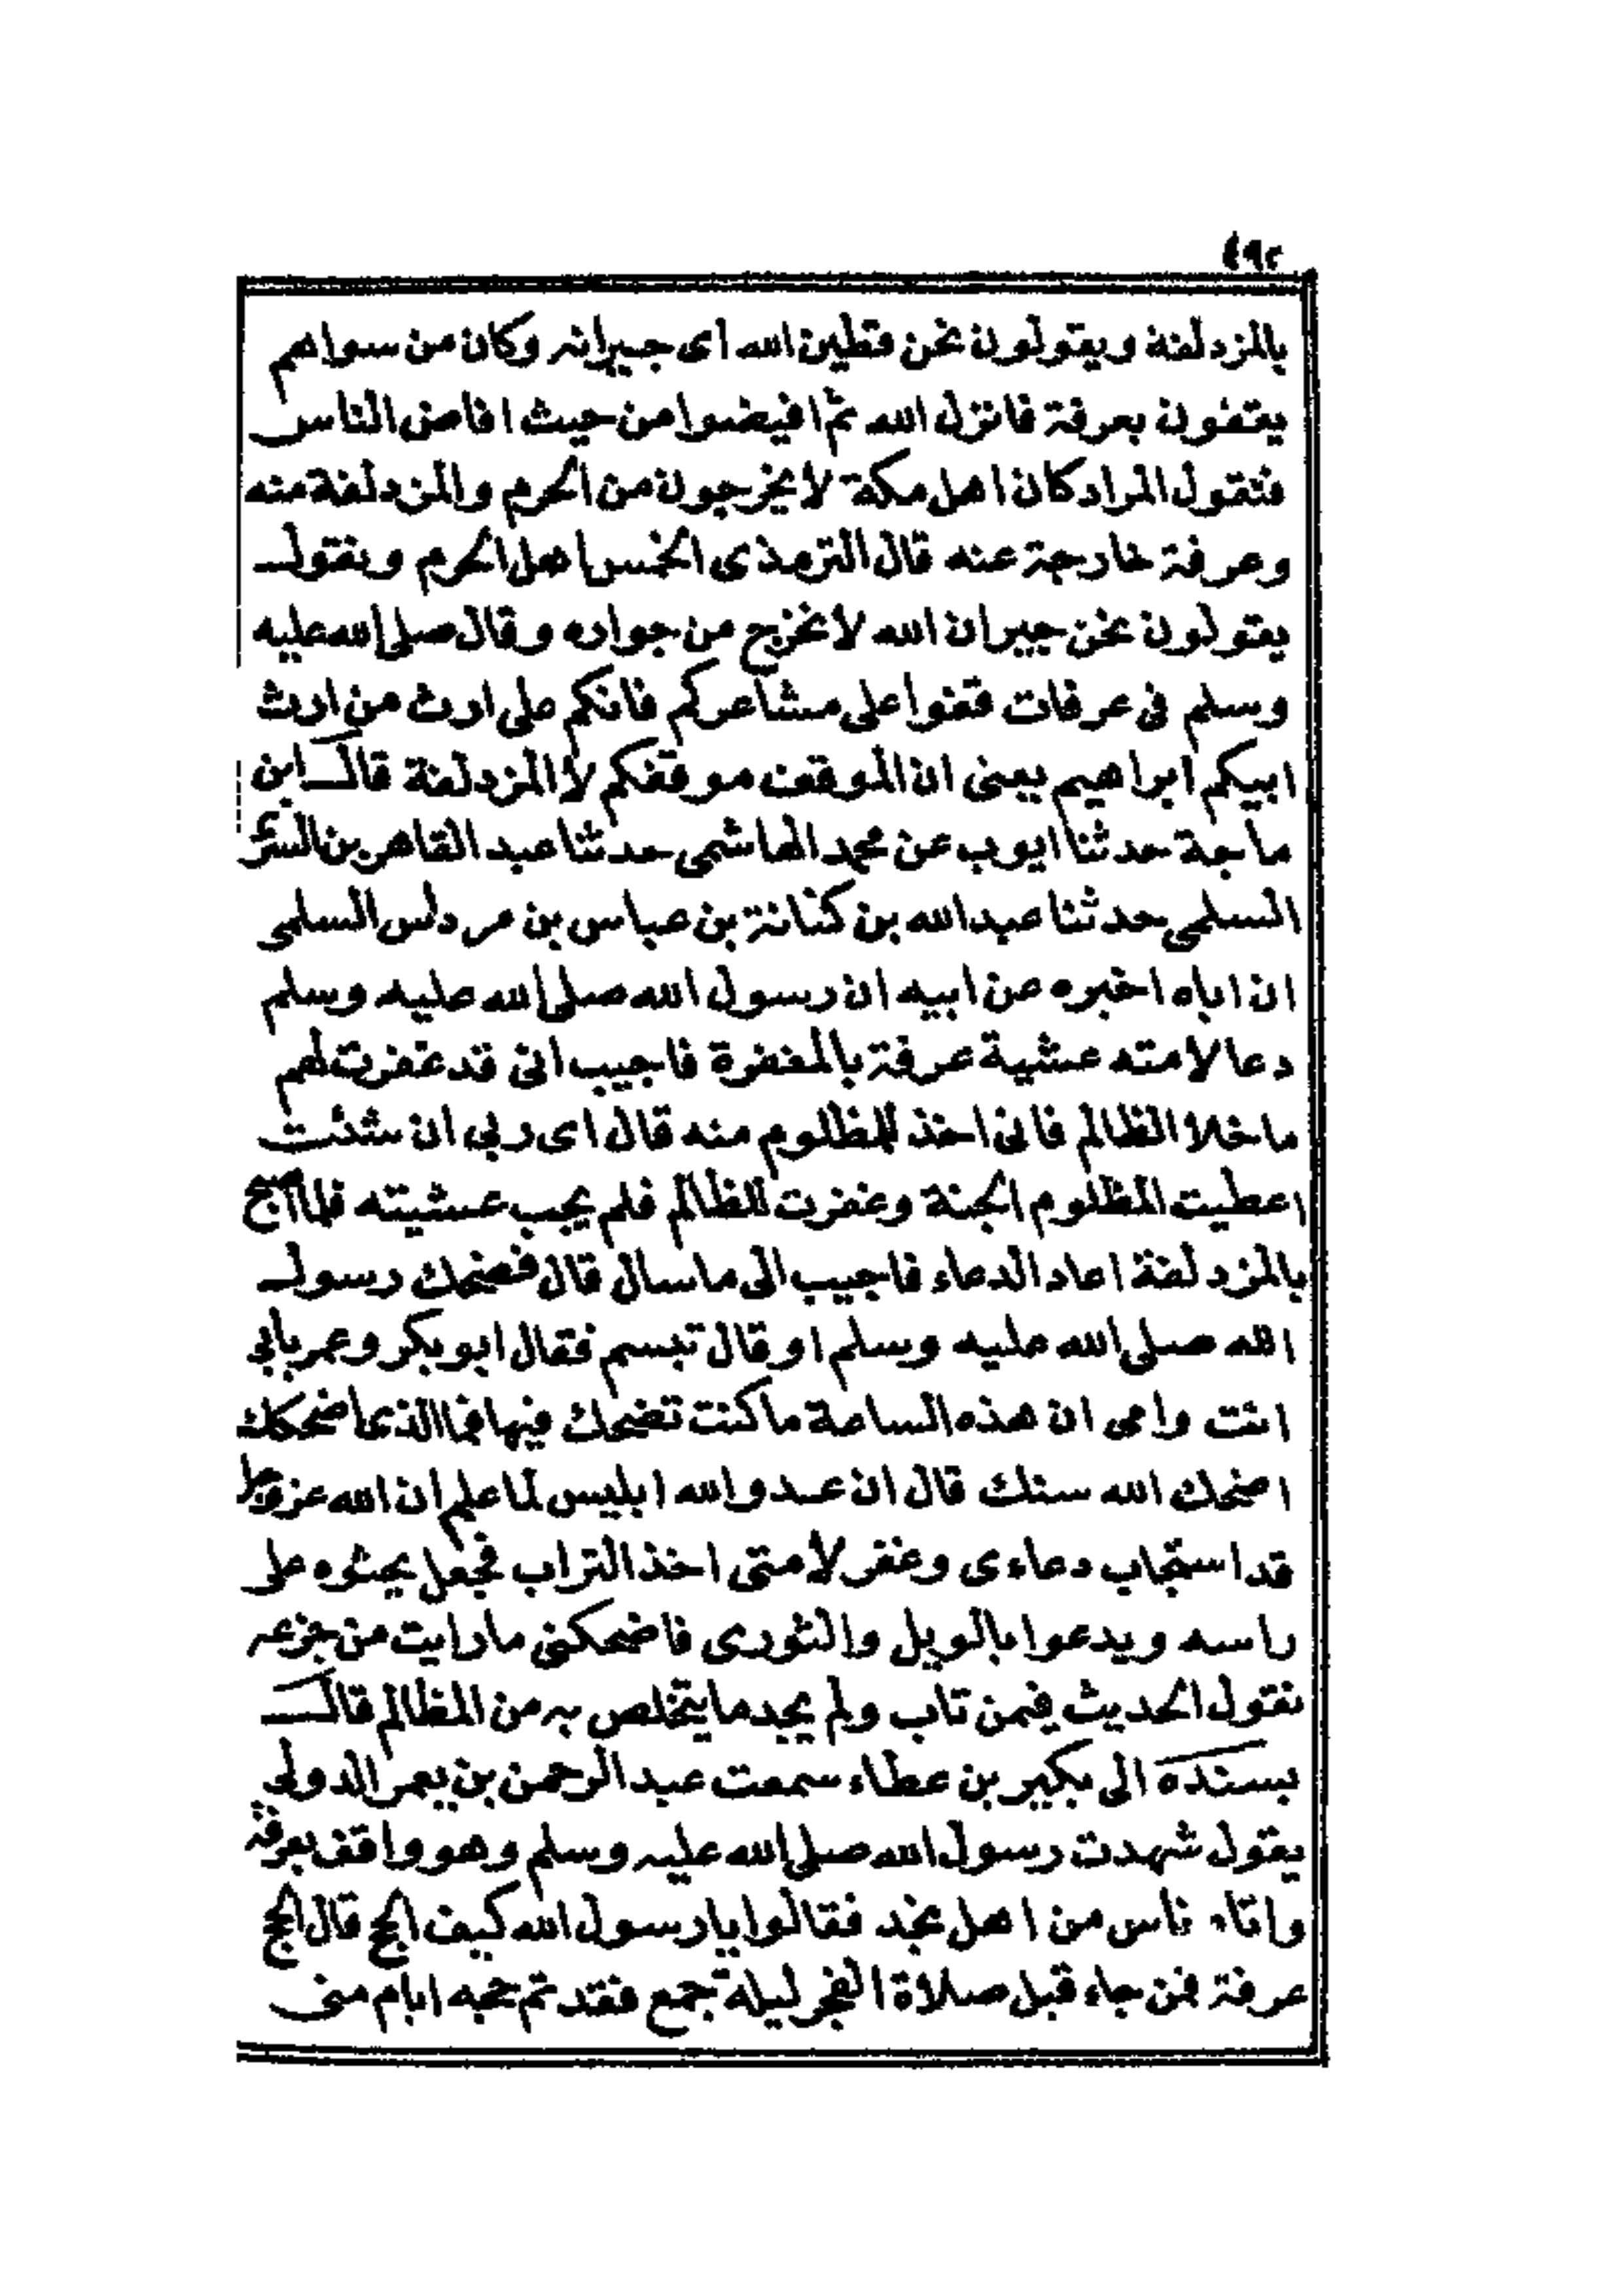 ٤٩٢
بالمزدلفة ويقولون نحن قطين الله اى جيرانه وكان من سواهم
يقفون بعرفة فانزل الله ثم افيضوا من حيث افاض الناس
فتقول المراد كان اهل مكة لا يخرجون من الحرم والمزدلفة منه
وعرفة خارجة عنه قال الترمذى الخمس اهل الحرم ونقول
يقولون نحن جيران الله لا نخرج من جواره وقال صلى الله عليه
وسلم فى عرفات قفوا على مشاعركم فانكم على ارث من ارث
ابيكم ابراهيم يعنى ان الموقف موقفكم لا المزدلفة قال ابن
ماجة حدثنا ايوب عن محمد الهاشمى حدثنا عبد القاهر بن السرى
السلمى حدثنا عبد الله بن كنانة بن عباس بن مردلس السلمى
ان اباه اخبره عن ابيه ان رسول الله صلى الله عليه وسلم
دعا لامته عشية عرفة بالمغفرة فاجيب انى قد غفرت لهم
ما خلا الظالم فانى اخذ للمظلوم منه قال اى ربى ان شئت
اعطيت المظلوم الجنة وغفرت للظالم فلم يجب عشيته فلما اصبح
بالمزدلفة اعاد الدعاء فاجيب الى ما سال قال فضحك رسول
الله صلى الله عليه وسلم او قال تبسم فقال ابو بكر وعمر بابي
انت وامى ان هذه الساعة ما كنت تضحك فيها فما الذى اضحكك
اضحك الله سنك قال ان عدو الله ابليس لما علم ان الله عز وجل
قد استجاب دعاءى وغفر لامتى اخذ التراب فجعل يحثوه على
راسه ويدعوا بالويل والثورى فاضحكنى ما رايت من جزعه
نقول الحديث فيمن تاب ولم يجد ما يتخلص به من المظالم قال
بسنده الى بكير بن عطاء سمعت عبد الرحمن بن يعمر الدولى
يقول شهدت رسول الله صلى الله عليه وسلم وهو واقف بعرفة
واتاه ناس من اهل نجد فقالوا يا رسول الله كيف الحج قال الحج
عرفة فمن جاء قبل صلاة الفجر ليلة جمع فقد تم حجه ايام منى